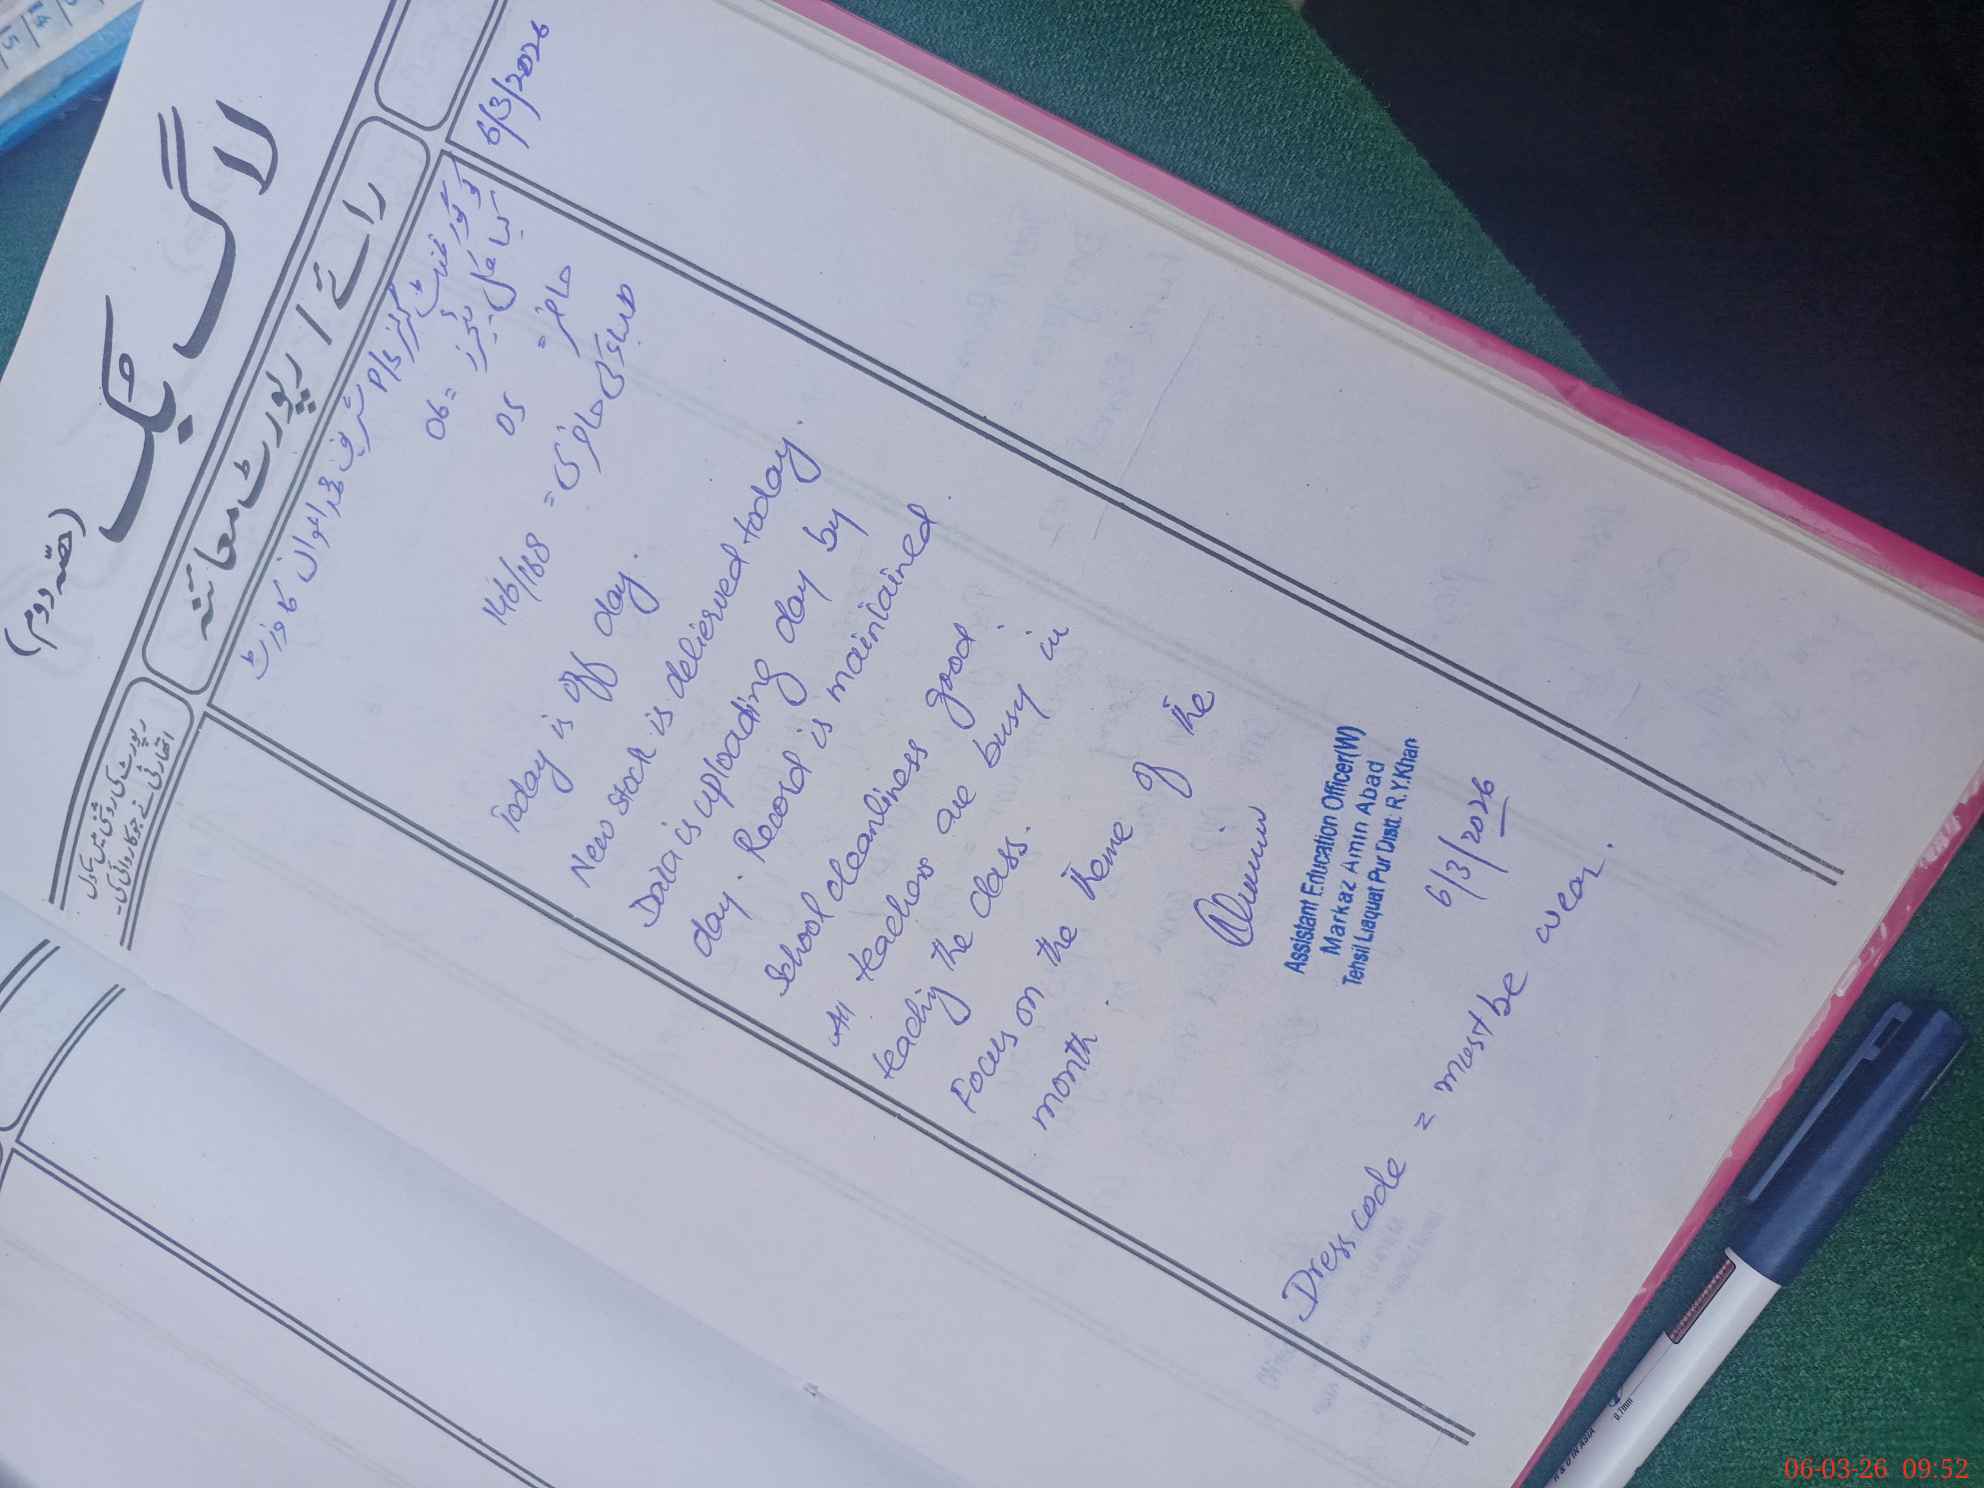 لاگ بک
(حصّہ دوم)
رائے / رپورٹ معائنہ
رپورٹ کی روشنی میں متبادل
اتھارٹی نے جو کاروائی کی۔
6/3/2026
گورنمنٹ گرلز P/S کا وزٹ
کیا کل ٹیچرز = 06
حاضر = 05
حاضری = 146/188
Today is off day.
New stock is delierved today.
Data is uploading day by
day. Record is maintained
School cleanliness good.
All teachers are busy in
teachig the class.
Focus on the theme of the
month.
Assistant Education Officer(W)
Markaz Amin Abad
Tehsil Liaquat Pur Distt. R.Y.Khan
6/3/2026
Dress code = must be wear.
0.7mm
06-03-26 09:52